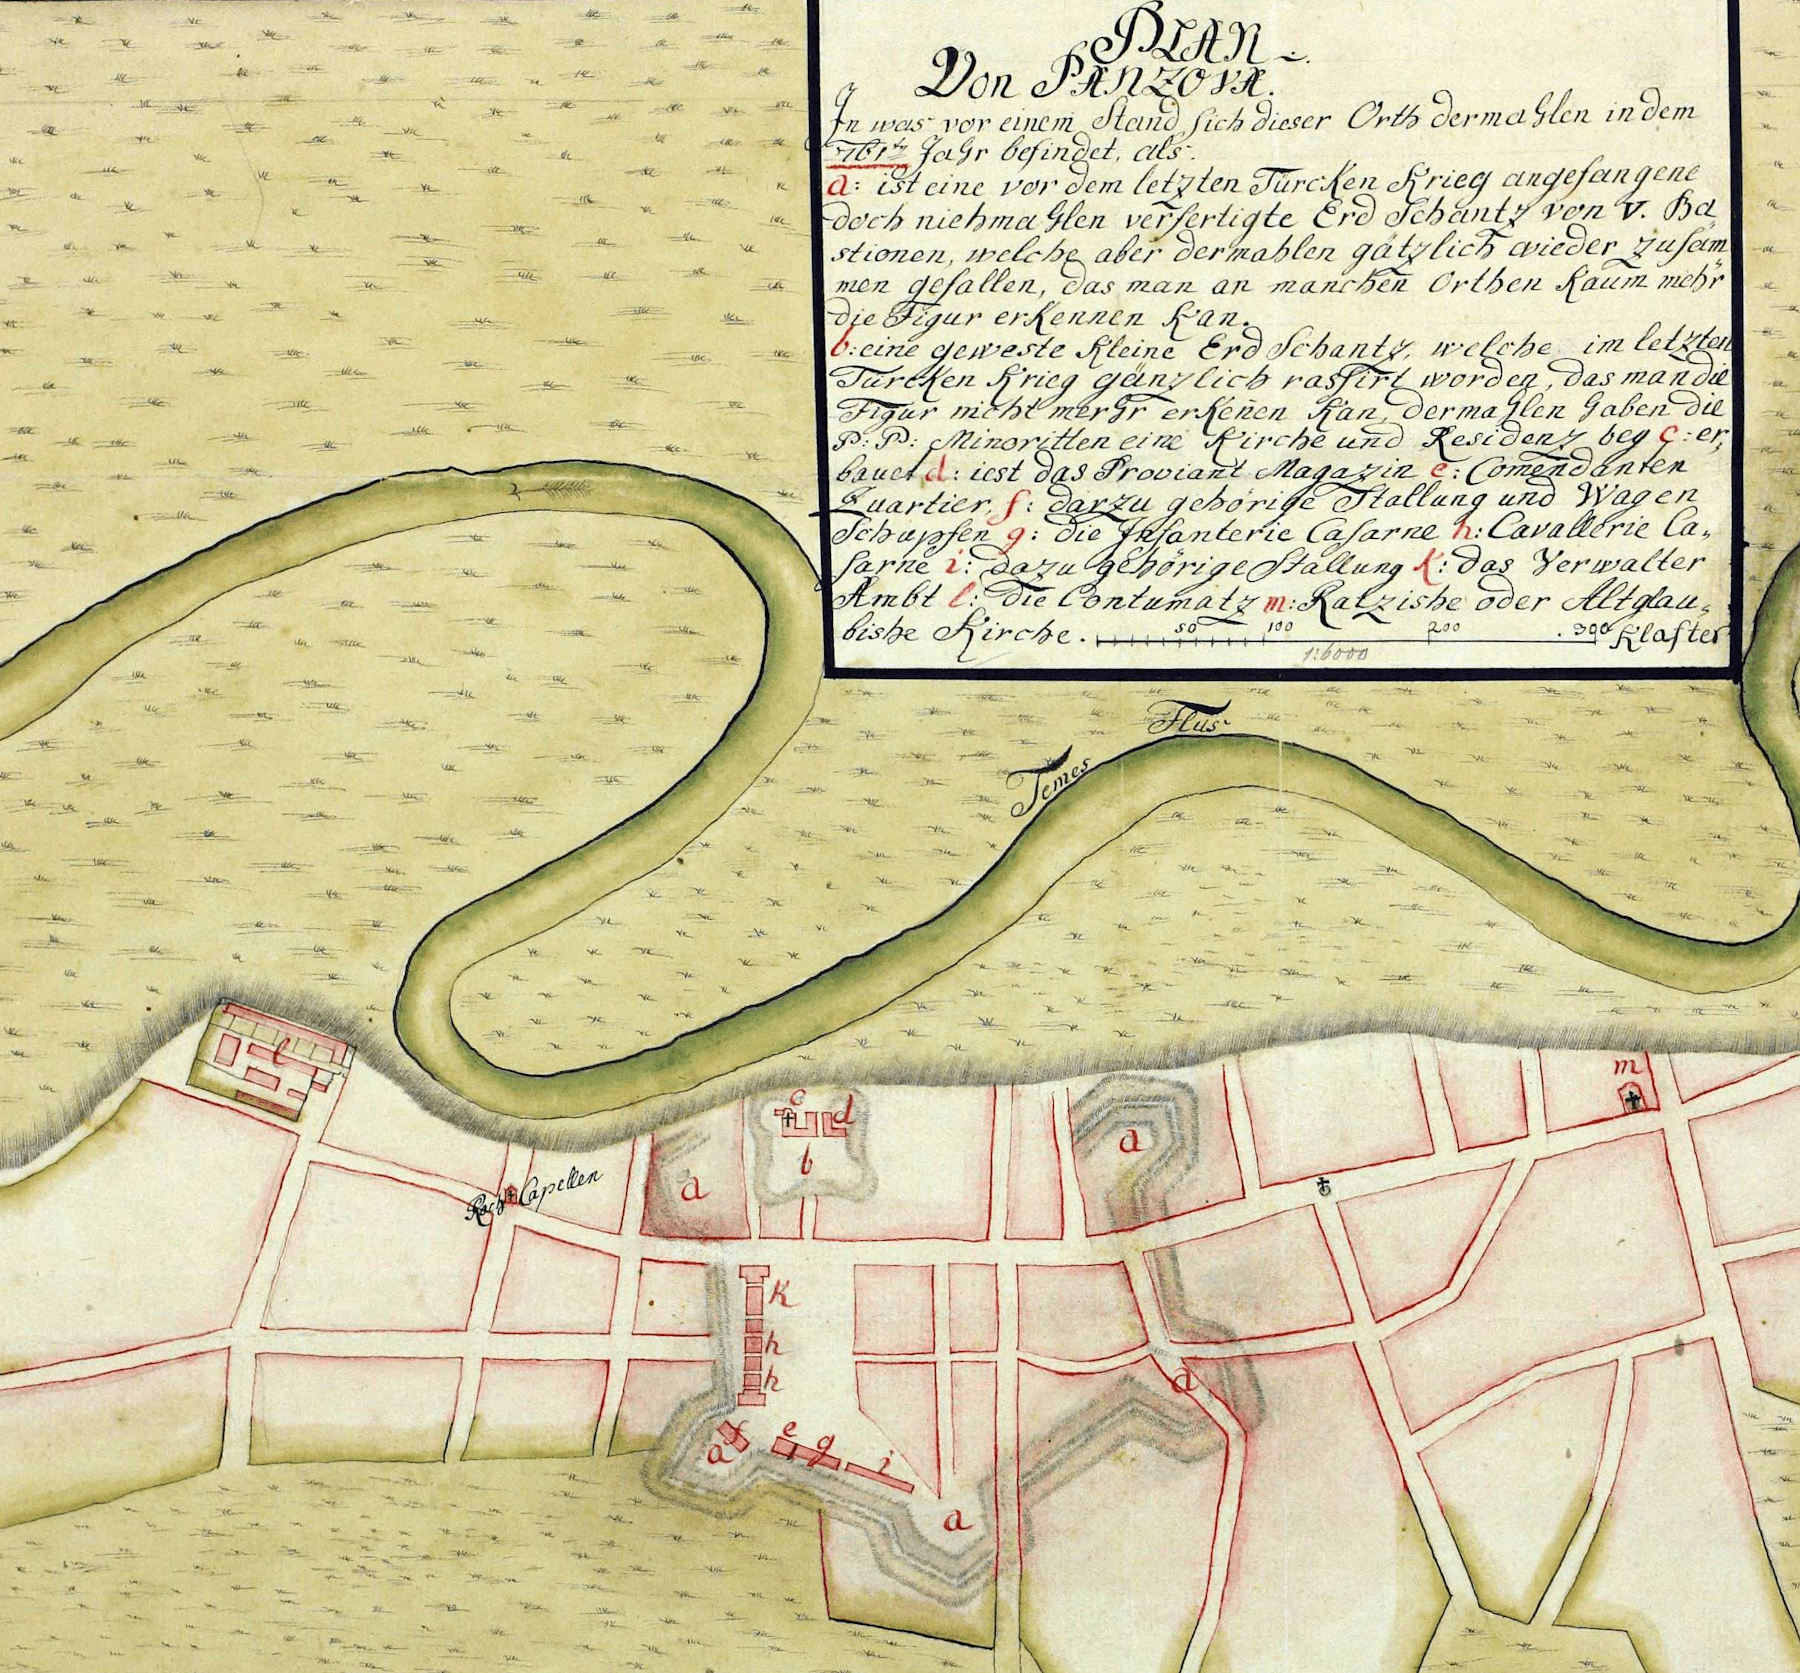 PLAN
Von PANZOVA.
In was vor einem Stand sich dieser Orth dermahlen in dem
761ten Jahr befindet, als:
a: ist eine vor dem letzten Türcken Krieg angefangene
doch niehmahlen verfertigte Erd Schantz von V. Ba
stionen, welche aber dermahlen gätzlich wieder zusam
men gefallen, das man an manchen Orthen Kaum mehr
die Figur erKennen Kan.
b: eine geweste Kleine Erd Schantz, welche im letzten
Türcken Krieg gänzlich rassirt worden, das man die
Figur nicht mehr erKen̄en Kan, dermahlen haben die
P: P: Minoritten eine Kirche und Residenz bey c: er,
bauet d: iest das Proviant Magazin e: Comendanten
Quartier, f: darzu gehörige Stallung und Wagen
Schupfen g: die Infanterie Casarne h: Cavallerie Ca,
sarne i: dazu gehörige Stallung K: das Verwalter
Ambt l: die Contumatz m: Ratzishe oder Altglau,
bishe Kirche. 50 100 200 300 Klafter
1:6000
Temes Flus
l
m
c
d
b
a
a
Roch Capellen
K
h
h
a
f
e
g
i
a
a